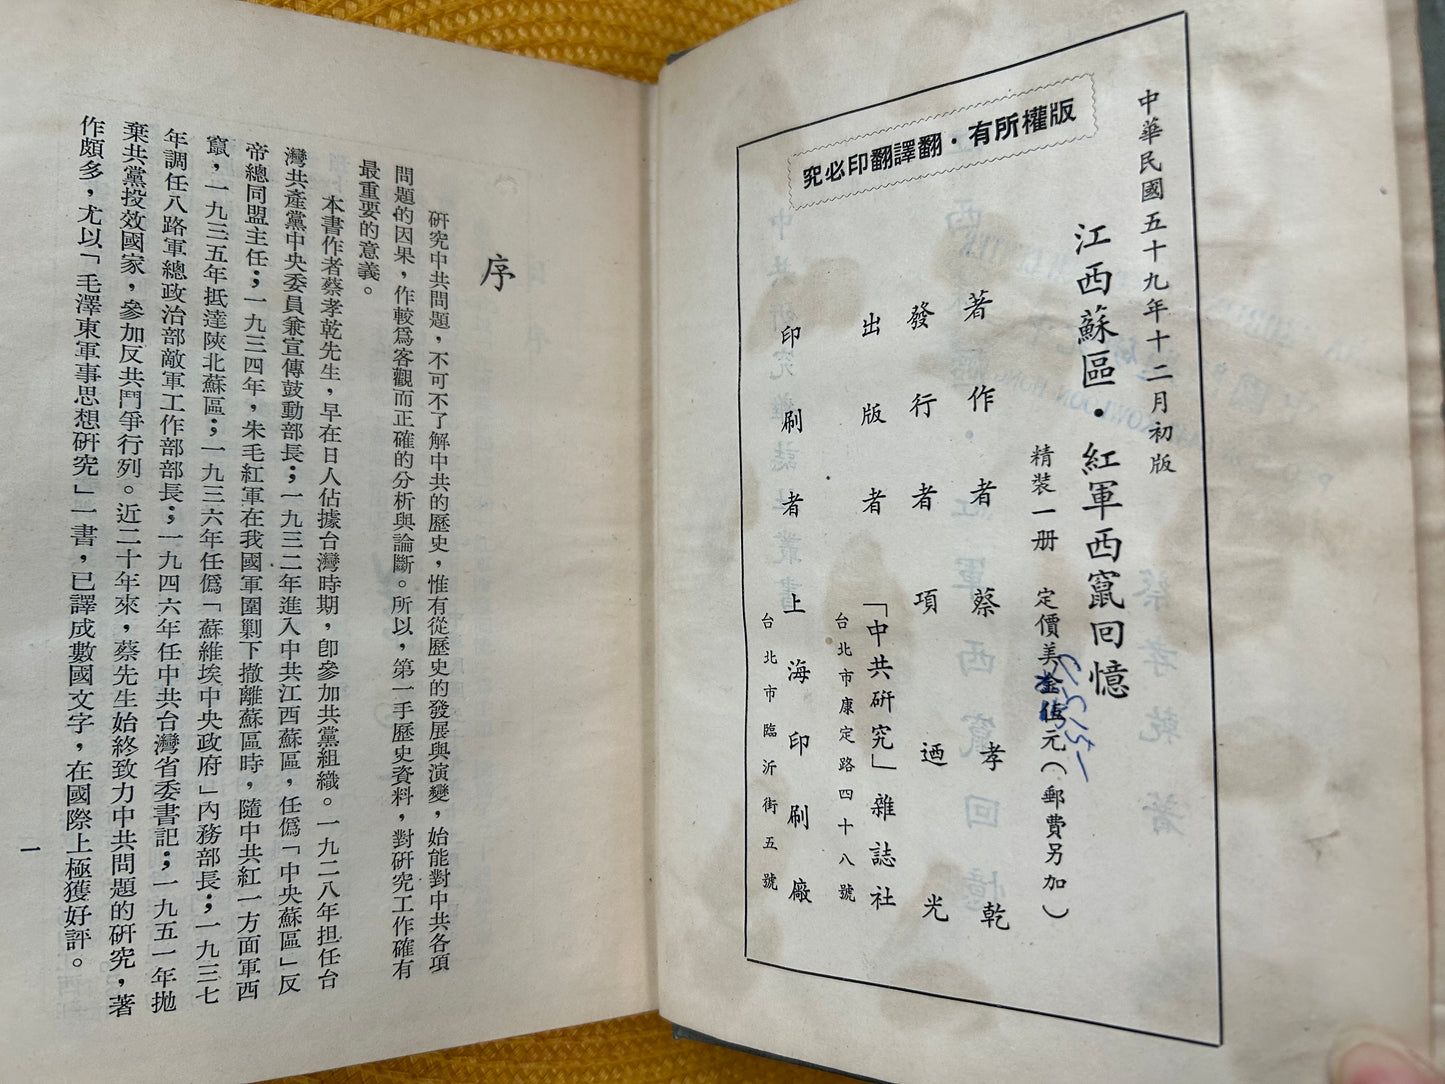 中華民國五十九年十二月初版
江西蘇區・紅軍西竄回憶
精裝一册 定價美金伍元(郵費另加)
著作者 蔡孝乾
發行者 項迺光
出版者 「中共研究」雜誌社
台北市康定路四十八號
印刷者 上海印刷廠
台北市臨沂街五號
版權所有・翻譯翻印必究
序
研究中共問題,不可不了解中共的歷史,惟有從歷史的發展與演變,始能對中共各項
問題的因果,作較爲客觀而正確的分析與論斷。所以,第一手歷史資料,對研究工作確有
最重要的意義。
本書作者蔡孝乾先生,早在日人佔據台灣時期,卽參加共黨組織。一九二八年担任台
灣共產黨中央委員兼宣傳鼓動部長;一九三二年進入中共江西蘇區,任僞「中央蘇區」反
帝總同盟主任;一九三四年,朱毛紅軍在我國軍圍剿下撤離蘇區時,隨中共紅一方面軍西
竄,一九三五年抵達陝北蘇區;一九三六年任僞「蘇維埃中央政府」內務部長;一九三七
年調任八路軍總政治部敵軍工作部部長;一九四六年任中共台灣省委書記;一九五一年拋
棄共黨投效國家,參加反共鬥爭行列。近二十年來,蔡先生始終致力中共問題的研究,著
作頗多,尤以「毛澤東軍事思想研究」一書,已譯成數國文字,在國際上極獲好評。
一